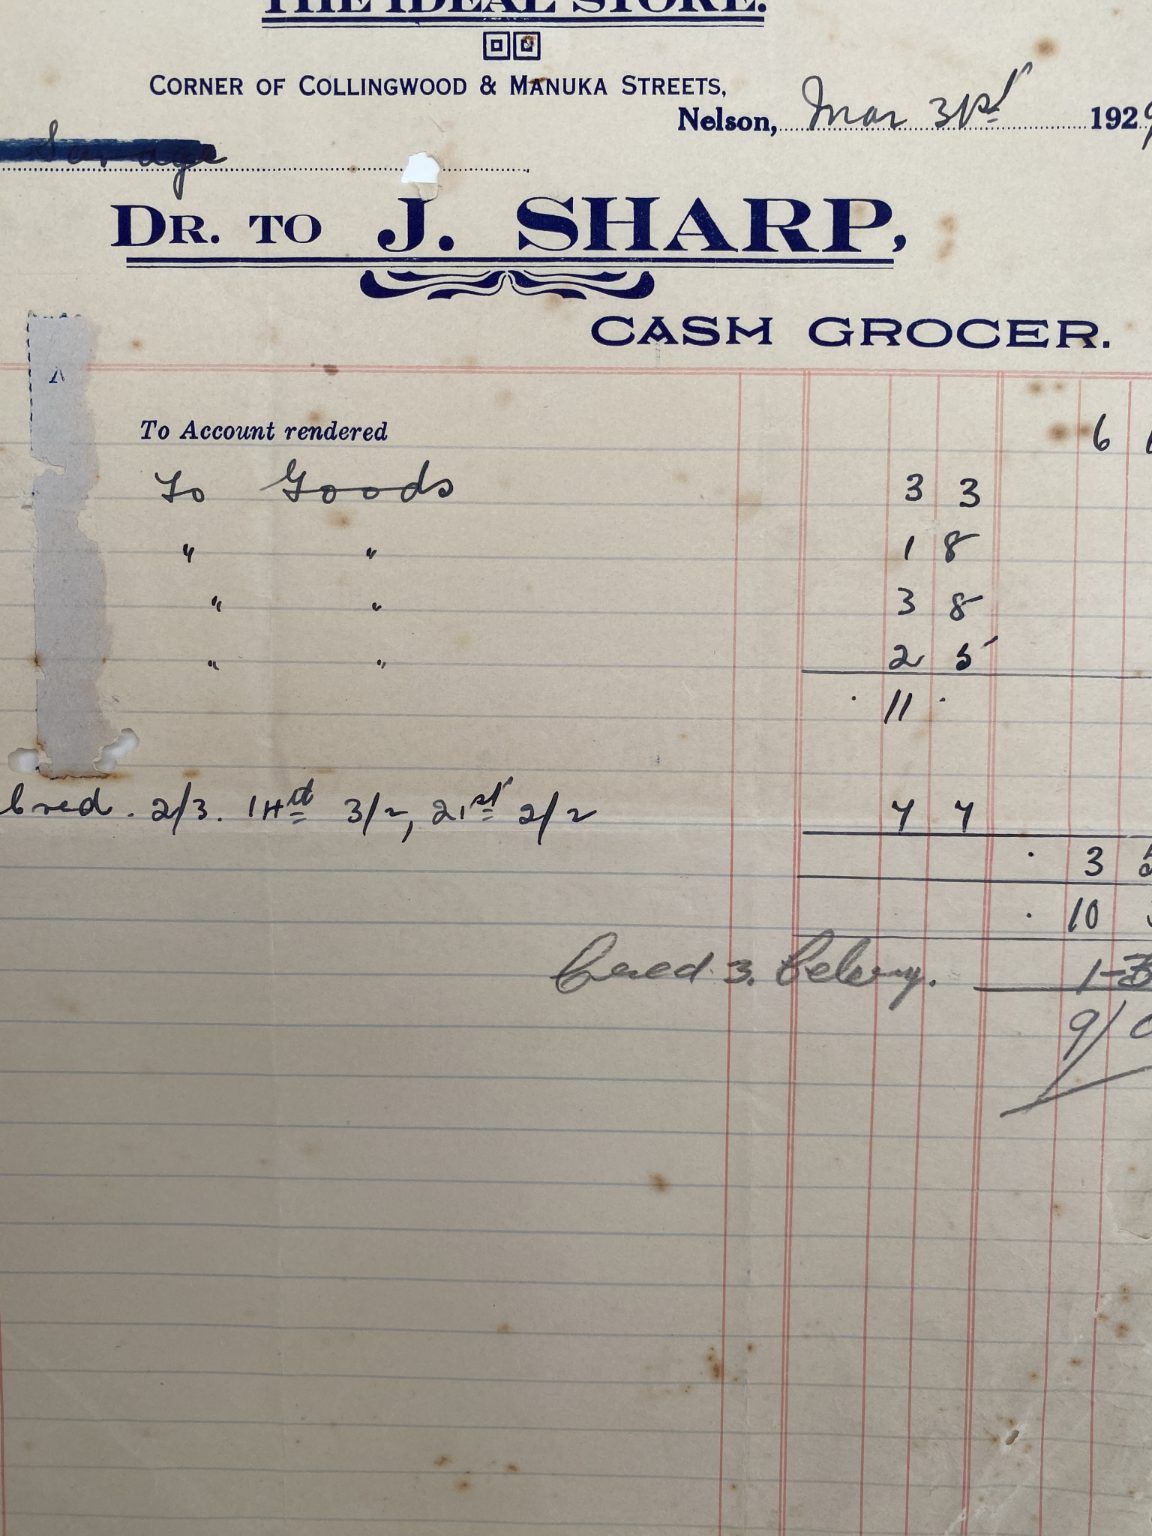 THE IDEAL STORE.
CORNER OF COLLINGWOOD & MANUKA STREETS,
Nelson, Mar 31st 1929
Savage
DR. TO J. SHARP,
CASH GROCER.
To Account rendered 6
To Goods 3 3
" " 1 8
" " 3 8
" " 2 5
11
2/3. 14th 3/2, 21st 2/2 7 7
3 5
10
3. Celery. 1-3
9/